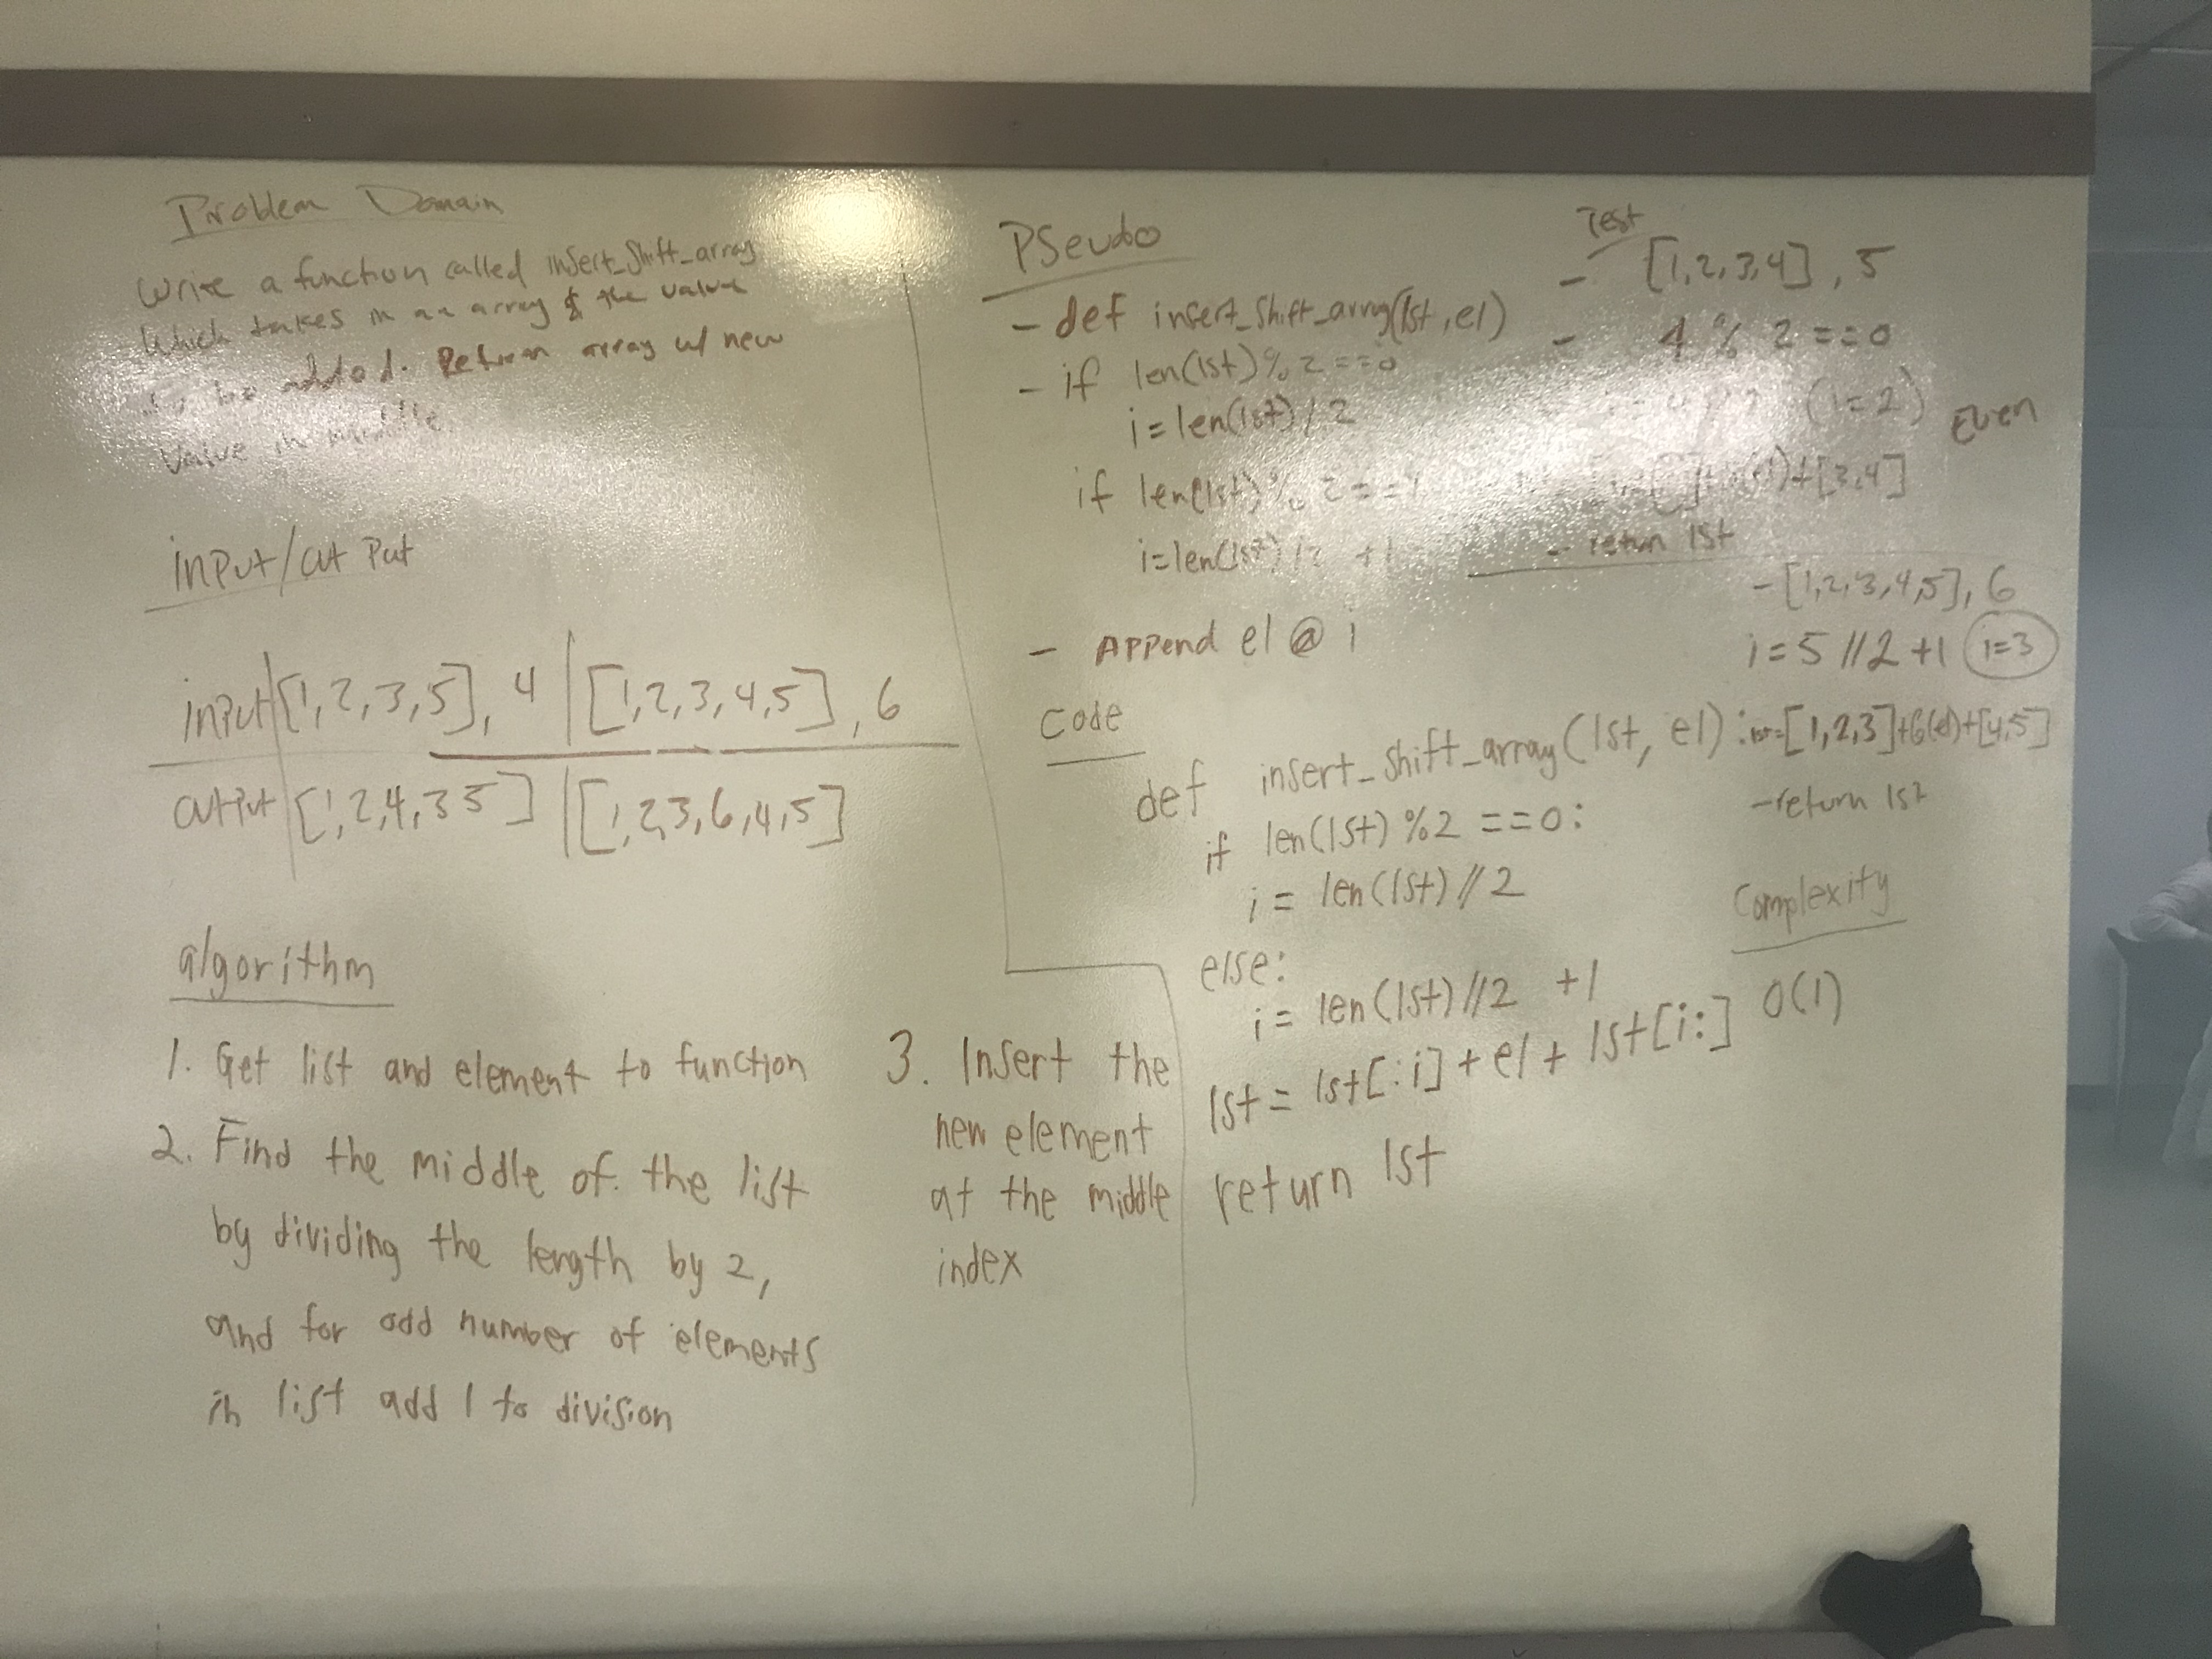 Problem Domain
Write a function called insert_shift_array
which takes in an array & the value
to be added. Return array w/ new
Value in middle.
input/out Put
input [1,2,3,5], 4 | [1,2,3,4,5], 6
output [1,2,4,3 5] | [1,2,3,6,4,5]
algorithm
1. Get list and element to function
2. Find the middle of the list
by dividing the length by 2,
and for odd number of elements
in list add 1 to division
3. Insert the
new element
at the middle
index
PSeudo
- def insert_shift_array(lst, el)
- if len(lst) % 2 == 0
i = len(lst) / 2
if len(lst) % 2 ==
i = len(lst) / 2 + 1
- APPend el @ i
Code
def insert_shift_array(lst, el):
if len(lst) %2 == 0:
i = len(lst) // 2
else:
i = len(lst) // 2 + 1
lst = lst[:i] + el + lst[i:]
return lst
Test
- [1,2,3,4], 5
- 4 % 2 == 0
(i=2)
Even
+[3,4]
- return lst
- [1,2,3,4,5], 6
i = 5 // 2 + 1 i=3
lst=[1,2,3]+6(el)+[4,5]
- return lst
Complexity
O(1)